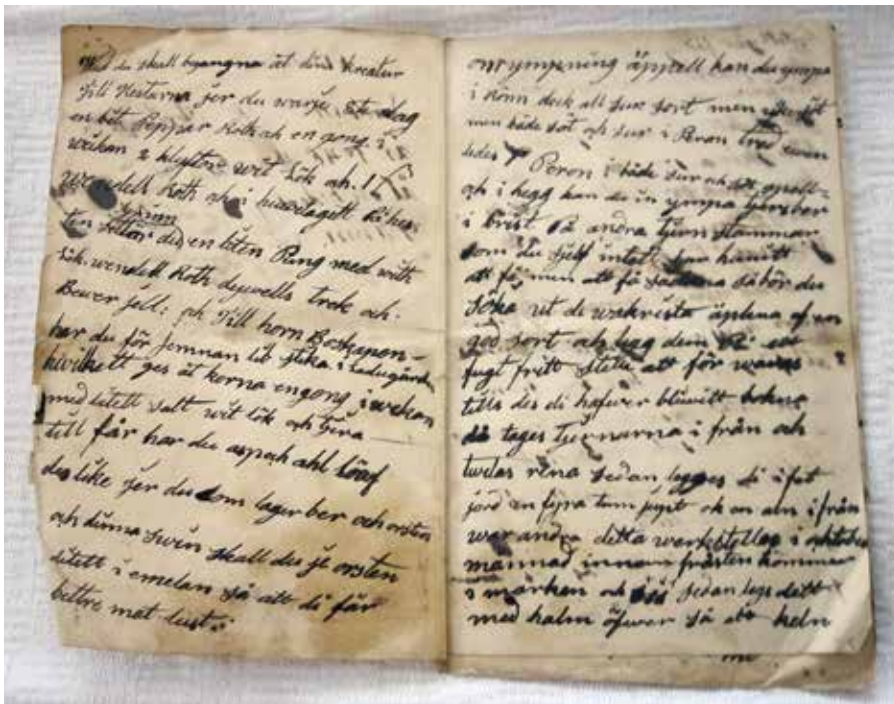 du skall angna åt dina kreatur
Till Hestarna jer du warje dag
en bit Peppar Roth ok en gong i
weikan 2 klyftor wit Lök ok 1/
Wendells Roth ok i
ten du en liten Pung med with
Lök. wendell Roth dyuvells trek ok
Bewer jell: ok Till horn Boskapen-
har du för jemnan lib stika i Ladugård
hwilkett ges åt korna engong i wekan
med litett salt wit lök och tjera
till får har du asp ok ahl löaf
des like jer du dom lager ber och orsten
och dinna swin skall du je orsten
litett i emelan så att di får
bettre mat lust:
om ympening äppell kan du ympa
i Rönn dock all sur sort men
men både söt och sur i Peron tred ewen
ledes Peron i både sur och söt
och i hegg kan du in ympa tjersber
i brist På andra tjern stammar
som du sjelf intet har hunitt
att få men att få så bör du
söka ut de wakrista äplena af en
god sort och legg dem På ett
fugt fritt stelle att för waras
tills des di hafwer bliwitt mokna
då tages tjernarna i från och
twelas rena sedan legges di i fet
jord en fyra tum jupt ok en aln i från
war andra detta werkstelles i oktober
mannad innan frosten kommer
i marken ok sedan legs dett
med halm öfwer så att heln